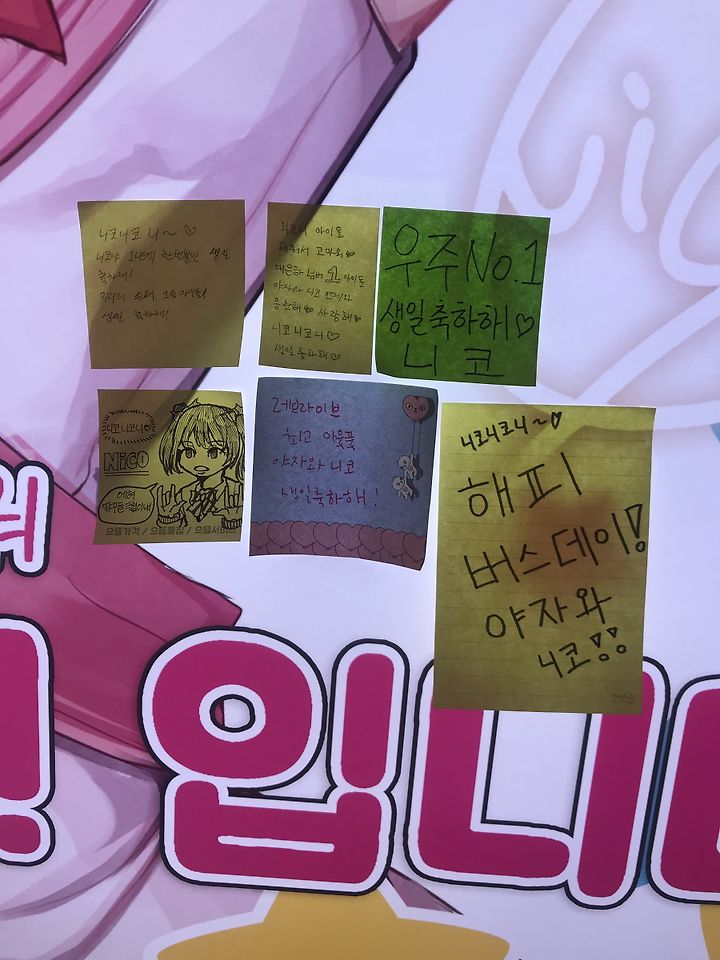 니코니코니~♡
니코야 1년에 한번뿐인 생일
축하해!
생일 축하해!
아이돌
해줘서 고마워
대은하 넘버 1 아이돌
야자와 니코 언제나
응원해 사랑해
니코니코니♡
생일축하해♡
우주No.1
생일축하해♡
니코
니코니코니♡
NiCO
으뜸가격 / 으뜸품질 / 으뜸서비스
러브라이브
최고 아웃풋
야자와 니코
생일축하해!
니코니코니~♡
해피
버스데이!
야자와
니코!!
! 입니다